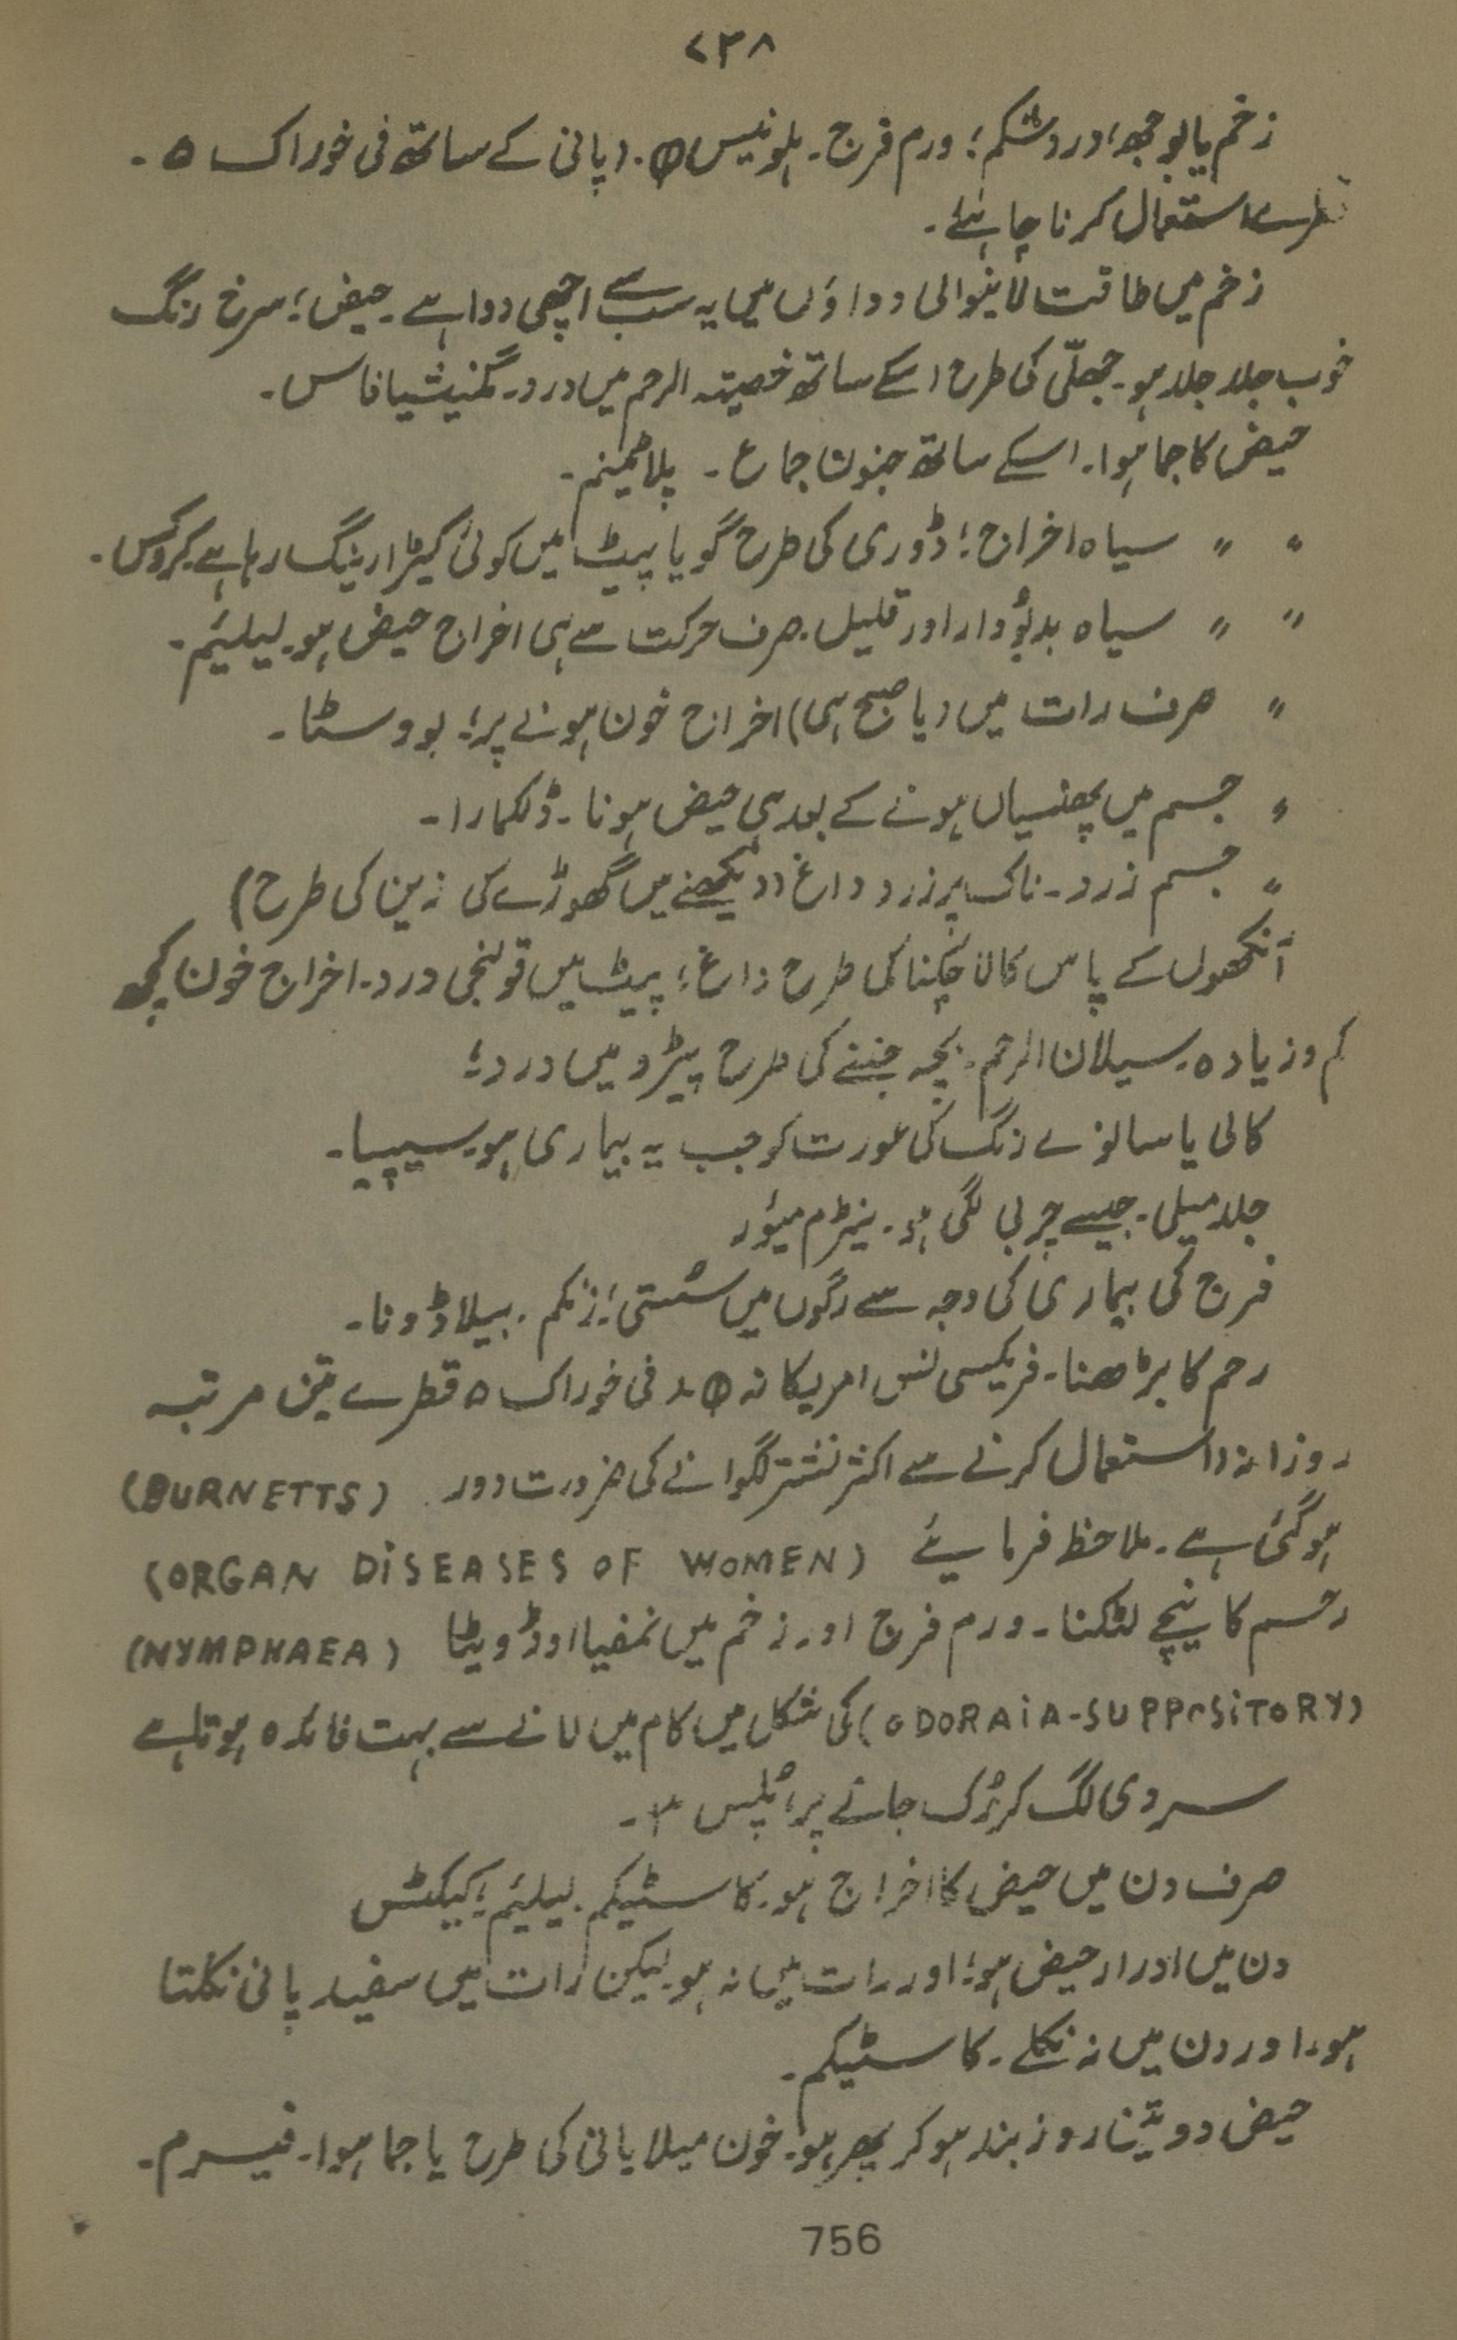 ۷۳۸
زخم یا بوجھ؛ درد شکم؛ ورم فرج۔ ہلونیس ⦶۔ (پانی کے ساتھ فی خوراک ۵ ۔
قطرے استعمال کرنا چاہئے۔
زخم میں طاقت لانیوالی دواؤں میں یہ سب سے اچھی دوا ہے۔ حیض؛ سرخ رنگ
خوب جلد جلد ہو۔ جھلّی کی طرح اسکے ساتھ خصیتہ الرحم میں درد۔ مگنیشیا فاس۔
حیض کا جما ہوا۔ اسکے ساتھ جنون جماع ۔ پلاٹینم۔
〃 〃 سیاہ اخراج؛ ڈوری کی طرح گویا پیٹ میں کوئی کیڑا رینگ رہا ہے۔ کروکس۔
〃 〃 سیاہ بدبُو دار اور قلیل۔ صرف حرکت سے ہی اخراج حیض ہو۔ لیلیئم۔
〃 صرف رات میں (یا صبح ہی) اخراج خون ہونے پر؛ بووسٹا۔
〃 جسم میں پھنسیاں ہونے کے بعد ہی حیض ہونا۔ ڈلکمارا۔
〃 جسم زرد۔ ناک پر زرد داغ (دیکھنے میں گھوڑے کی زین کی طرح)
آنکھوں کے پاس کالا چکنا کی طرح داغ؛ پیٹ میں قولنجی درد۔ اخراج خون کچھ
کم و زیادہ۔ سیلان الرحم۔ بچہ جننے کی طرح پیڑو میں درد؛
کالی یا سانولے رنگ کی عورت کو جب یہ بیماری ہو۔ سیپیا۔
جلد میلی۔ جیسے چربی لگی ہو۔ نیٹرم میئور
فرج کی بیماری کی وجہ سے رگوں میں سُستی؛ زنکم۔ بیلاڈونا۔
رحم کا بڑھنا۔ فریکسی نس امریکانہ ⦶ ۔ فی خوراک ۵ قطرے تین مرتبہ
روزانہ) استعمال کرنے سے اکثر نشتر لگوانے کی ضرورت دور (BURNETTS)
ہو گئی ہے۔ ملاحظ فرمایئے (ORGAN DISEASES OF WOMEN)
رحم کا نیچے لٹکنا۔ ورم فرج اور زخم میں نمفیا اوڈویٹا (NYMPHAEA)
(ODORAIA-SUPPOSITORY) کی شکل میں کام میں لانے سے بہت فائدہ ہوتا ہے
سردی لگ کر رُک جانے پر؛ پلس ۳۔
صرف دن میں حیض کا اخراج ہو۔ کاسٹیکم۔ لیلیئم؛ کیکٹس
دن میں ادرار حیض ہو؛ اور رات میں نہ ہو۔ لیکن رات میں سفید پانی نکلتا
ہو۔ اور دن میں نہ نکلے۔ کاسٹیکم۔
حیض دو تین روز بند ہو کر پھر ہو۔ خون میلا پانی کی طرح یا جما ہوا۔ فیرم۔
756